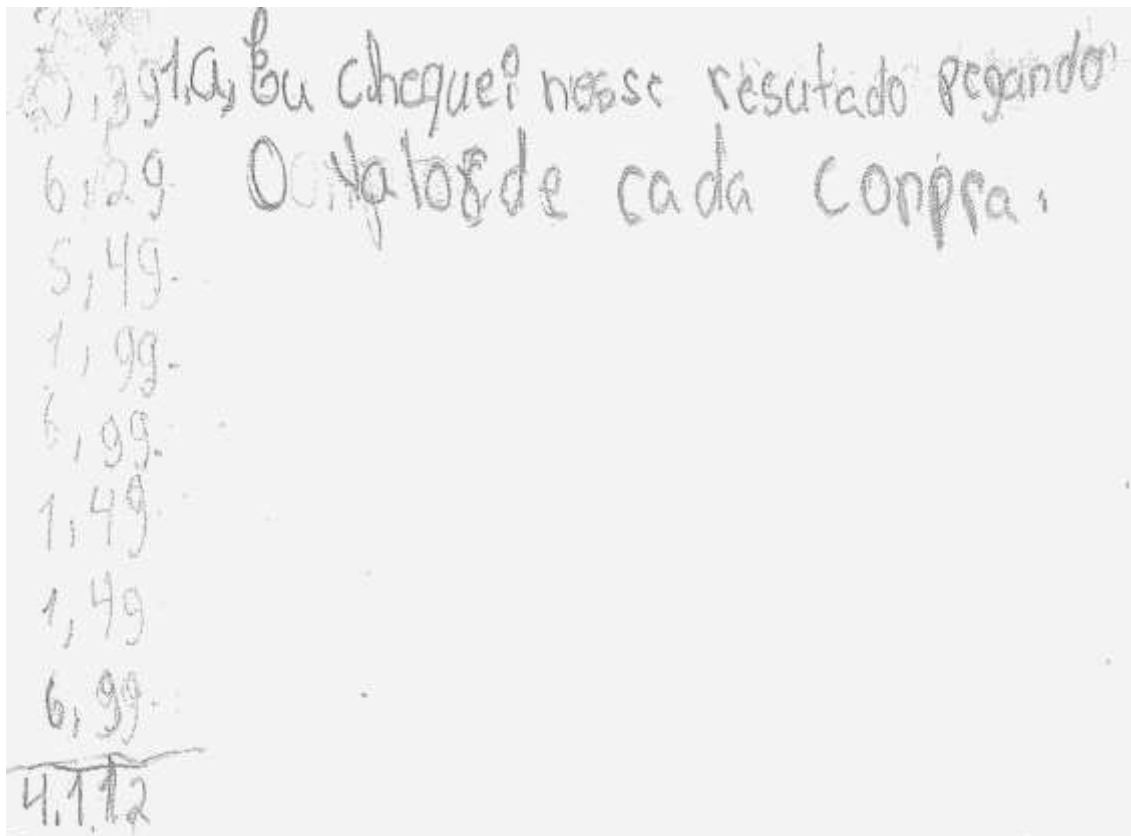 1.a, Eu chequei nesse resutado pegando
O valor de cada conpra.
6,29
5,49
1,99
6,99
1,49
1,49
6,99
4.1.12